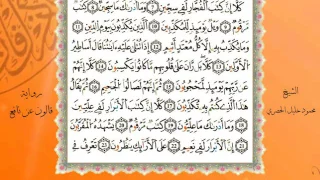 كَلَّا إِنَّ كِتَٰبَ الْفُجَّارِ لَفِي سِجِّينٍ 7 وَمَا أَدْرَىٰكَ مَا سِجِّينٌ 8 كِتَٰبٌ
مَّرْقُومٌ 9 وَيْلٌ يَوْمَئِذٍ لِّلْمُكَذِّبِينَ 10 الَّذِينَ يُكَذِّبُونَ بِيَوْمِ الدِّينِ 11
وَمَا يُكَذِّبُ بِهِ إِلَّا كُلُّ مُعْتَدٍ أَثِيمٍ 12 إِذَا تُتْلَىٰ عَلَيْهِ ءَايَٰتُنَا قَالَ أَسَٰطِيرُ
الْأَوَّلِينَ 13 كَلَّا بَل رَّانَ عَلَىٰ قُلُوبِهِم مَّا كَانُوا يَكْسِبُونَ 14 كَلَّا إِنَّهُمْ
عَن رَّبِّهِمْ يَوْمَئِذٍ لَّمَحْجُوبُونَ 15 ثُمَّ إِنَّهُمْ لَصَالُوا الْجَحِيمِ 16 ثُمَّ يُقَالُ
هَٰذَا الَّذِي كُنتُم بِهِ تُكَذِّبُونَ 17 كَلَّا إِنَّ كِتَٰبَ الْأَبْرَارِ لَفِي عِلِّيِّينَ
18 وَمَا أَدْرَىٰكَ مَا عِلِّيُّونَ 19 كِتَٰبٌ مَّرْقُومٌ 20 يَشْهَدُهُ الْمُقَرَّبُونَ
21 إِنَّ الْأَبْرَارَ لَفِي نَعِيمٍ 22 عَلَى الْأَرَائِكِ يَنظُرُونَ 23 تَعْرِفُ فِي
الشيخ
محمود خليل الحصري
رواية
قالون عن نافع